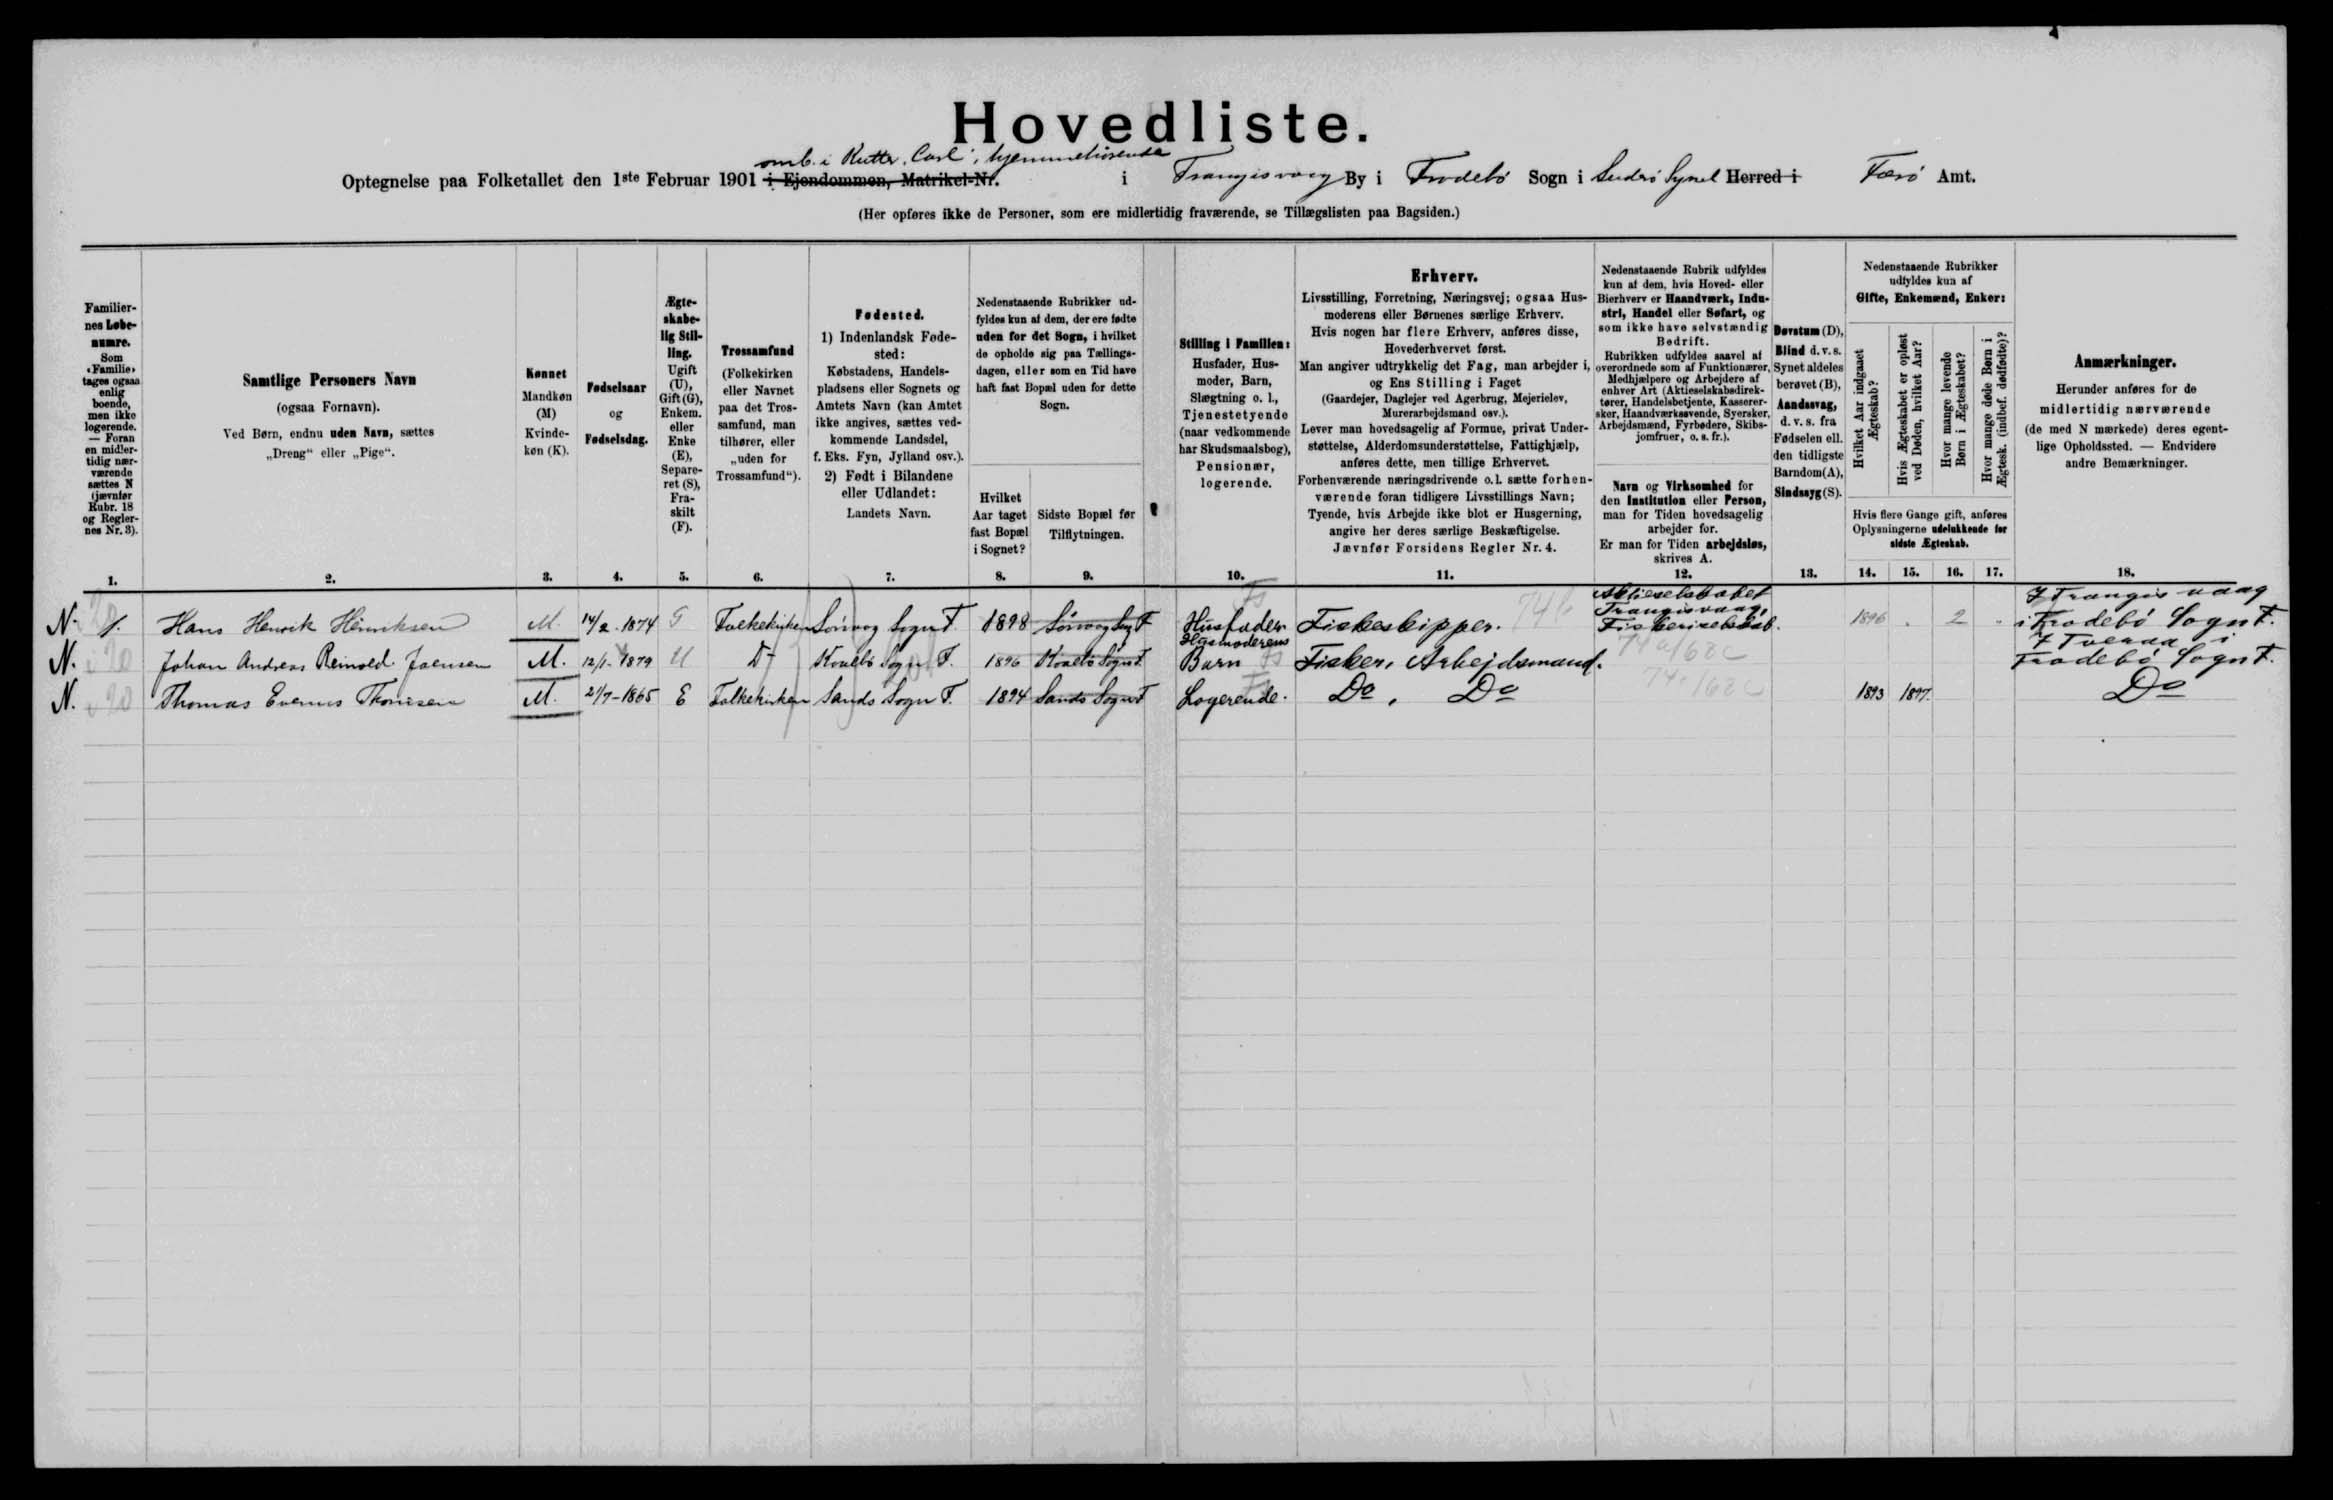 Hovedliste.
omb. i Kutter "Carl", hjemmehørende
Optegnelse paa Folketallet den 1ste Februar 1901 i Ejendommen, Matrikel-Nr. i Trangisvaag By i Frodebö Sogn i Suderö Syssel Herred i Færö Amt.
(Her opføres ikke de Personer, som ere midlertidig fraværende, se Tillægslisten paa Bagsiden.)
Familier-
nes Løbe-
numre.
Som
«Familie»
tages ogsaa
enlig
boende,
men ikke
logerende.
— Foran
en midler-
tidig nær-
værende
sættes N
(jævnfør
Rubr. 18
og Regler-
nes Nr. 3).
1.
Samtlige Personers Navn
(ogsaa Fornavn).
Ved Børn, endnu uden Navn, sættes
„Dreng“ eller „Pige“.
2.
Kønnet
Mandkøn
(M)
Kvinde-
køn (K).
3.
Fødselsaar
og
Fødselsdag.
4.
Ægte-
skabe-
lig Stil-
ling.
Ugift
(U),
Gift (G),
Enkem.
eller
Enke
(E),
Separe-
ret (S),
Fra-
skilt
(F).
5.
Trossamfund
(Folkekirken
eller Navnet
paa det Tros-
samfund, man
tilhører, eller
„uden for
Trossamfund“).
6.
Fødested.
1) Indenlandsk Føde-
sted:
Købstadens, Handels-
pladsens eller Sognets og
Amtets Navn (kan Amtet
ikke angives, sættes ved-
kommende Landsdel,
f. Eks. Fyn, Jylland osv.).
2) Født i Bilandene
eller Udlandet:
Landets Navn.
7.
Nedenstaaende Rubrikker ud-
fyldes kun af dem, der ere fødte
uden for det Sogn, i hvilket
de opholde sig paa Tællings-
dagen, eller som en Tid have
haft fast Bopæl uden for dette
Sogn.
Hvilket
Aar taget
fast Bopæl
i Sognet?
8.
Sidste Bopæl før
Tilflytningen.
9.
Stilling i Familien:
Husfader, Hus-
moder, Barn,
Slægtning o. l.,
Tjenestetyende
(naar vedkommende
har Skudsmaalsbog),
Pensionær,
logerende.
10.
Erhverv.
Livsstilling, Forretning, Næringsvej; ogsaa Hus-
moderens eller Børnenes særlige Erhverv.
Hvis nogen har flere Erhverv, anføres disse,
Hovederhvervet først.
Man angiver udtrykkelig det Fag, man arbejder i,
og Ens Stilling i Faget
(Gaardejer, Daglejer ved Agerbrug, Mejerielev,
Murerarbejdsmand osv.).
Lever man hovedsagelig af Formue, privat Under-
støttelse, Alderdomsunderstøttelse, Fattighjælp,
anføres dette, men tillige Erhvervet.
Forhenværende næringsdrivende o.l. sætte forhen-
værende foran tidligere Livsstillings Navn;
Tyende, hvis Arbejde ikke blot er Husgerning,
angive her deres særlige Beskæftigelse.
Jævnfør Forsidens Regler Nr. 4.
11.
Nedenstaaende Rubrik udfyldes
kun af dem, hvis Hoved- eller
Bierhverv er Haandværk, Indu-
stri, Handel eller Søfart, og
som ikke have selvstændig
Bedrift.
Rubrikken udfyldes saavel af
overordnede som af Funktionærer,
Medhjælpere og Arbejdere af
enhver Art (Aktieselskabsdirek-
tører, Handelsbetjente, Kasserer-
sker, Haandværkssvende, Syersker,
Arbejdsmænd, Fyrbødere, Skibs-
jomfruer, o. s. fr.).
Navn og Virksomhed for
den Institution eller Person,
man for Tiden hovedsagelig
arbejder for.
Er man for Tiden arbejdsløs,
skrives A.
12.
Døvstum (D),
Blind d. v. s.
Synet aldeles
berøvet (B),
Aandssvag,
d. v. s. fra
Fødselen ell.
den tidligste
Barndom (A),
Sindssyg (S).
13.
Nedenstaaende Rubrikker
udfyldes kun af
Gifte, Enkemænd, Enker:
Hvilket Aar indgaaet
Ægteskab?
Hvis Ægteskabet er opløst
ved Døden, hvilket Aar?
Hvor mange levende
Børn i Ægteskabet?
Hvor mange døde Børn i
Ægtesk. (indbef. dødfødte)?
Hvis flere Gange gift, anføres
Oplysningerne udelukkende for
sidste Ægteskab.
14. 15. 16. 17.
Anmærkninger.
Herunder anføres for de
midlertidig nærværende
(de med N mærkede) deres egent-
lige Opholdssted. — Endvidere
andre Bemærkninger.
18.
N. 1. Hans Henrik Henriksen M. 14/2-1874 G Folkekirken Sörvaag Sogn F. 1898 Sörvaag Sogn F Husfader Fiskeskipper. 74b Aktieselskabet Trangisvaag, Fiskeriselskab. 1896 . 2 . I Trangisvaag i Frodebö Sogn F.
N. Johan Andreas Reinold Joensen M. 12/1-1879 U Do Kvalbö Sogn F. 1896 Kvalbö Sogn F. Husmoderens Barn Fisker, Arbejdsmand. 74a/62c I Tveraa i Frodebö Sogn F.
N. Thomas Evenus Thomsen M. 21/7-1865 E Folkekirken Sands Sogn F. 1894 Sands Sogn F Logerende. Do, Do 74a/62c 1893 1897. Do